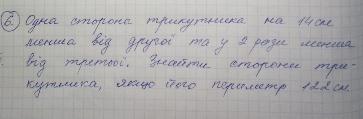 6. Одна сторона трикутника на 14 см
менша від другої та у 2 рази менша
від третьої. Знайти сторони три-
кутника, якщо його периметр 122 см.